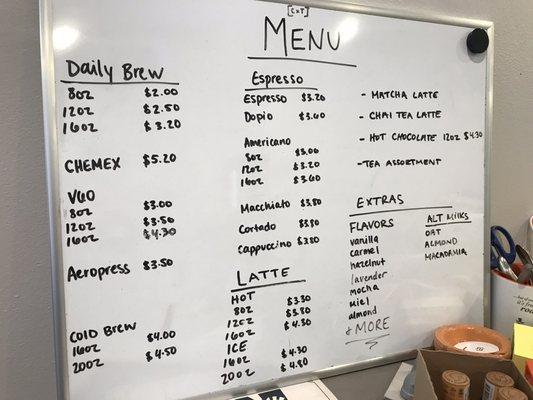 [CxT]
MENU
Daily Brew
8oz $2.00
12oz $2.50
16oz $3.20
CHEMEX $5.20
V60
8oz $3.00
12oz $3.50
16oz $4.30
Aeropress $3.50
COLD BREW
16oz $4.00
20oz $4.50
Espresso
Espresso $3.20
Dopio $3.60
Americano
8oz $3.00
12oz $3.20
16oz $3.60
Macchiato $3.80
Cortado $3.80
Cappuccino $3.80
LATTE
HOT
8oz $3.30
12oz $3.80
16oz $4.30
ICE
16oz $4.30
20oz $4.80
- MATCHA LATTE
- CHAI TEA LATTE
- HOT CHOCOLATE 12oz $4.30
- TEA ASSORTMENT
EXTRAS
FLAVORS
vanilla
carmel
hazelnut
lavender
mocha
miel
almond
& MORE
ALT MILKS
OAT
ALMOND
MACADAMIA